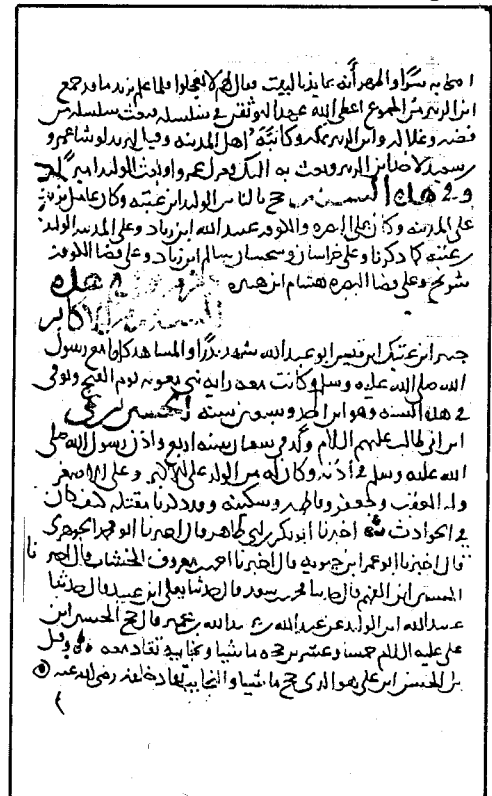 به سرا والمهر أنه عايذ بالبيت وقال لهم لا تعجلوا فلما علم يزيد ما قد جمع
ابن الزبير من الجموع اعطى الله عهدا ليوثقن في سلسله فبعث سلسله من
فضه وابن الزبير بمكه وكاتبه اهل المدينه وقيل ليزيد لو شا عمرو
بن سعيد لاخذ ابن الزبير وبعث به اليك فعزل عمرو الوليد اميرا
وفي هذه السنه حج بالناس الوليد ابن عتبه وكان عامل يزيد
على المدينه وكان على البصره والكوفه عبيد الله ابن زياد وعلى المدينه الوليد
بن عتبه كما ذكرنا وعلى خراسان وسجستان سالم ابن زياد وعلى قضا الكوفه
شريح وعلى قضا البصره هشام ابن هبيره في هذه
السنه من الاكابر
جبر ابن عتيك ابن قيس ابو عبد الله شهد بدرًا والمشاهد كلها مع رسول
الله صلى الله عليه وسلم وكانت معه رايه بني معويه يوم الفتح وتوفي
في هذه السنه وهو ابن احد وسبعين سنه الحسين بن علي
ابن ابي طالب عليهم السلام ولد في شعبان سنه اربع واذن رسول الله صلى
الله عليه وسلم في أذنه وكان له من الولد علي الاكبر وعلي الاصغر
وله العقب وجعفر وفاطمه وسكينه وقد ذكرنا مقتله كيف كان
في الحوادث اخبرنا ابو بكر بن ابي طاهر قال اخبرنا ابو محمد الجوهري
قال اخبرنا ابو عمر ابن حيويه قال اخبرنا احمد بن معروف الخشاب قال اخبرنا
الحسين ابن الفهم قال حدثنا محمد بن سعد قال حدثنا يعلى ابن عبيد قال حدثنا
عبيد الله ابن الوليد عن عبد الله بن عبيد الله بن عمير قال حج الحسين ابن
علي عليه السلام خمسا وعشرين حجه ماشيا ونجايبه تقاد معه وقيل
بل الحسن ابن علي هو الذي حج ماشيا والنجايب تقاد خلفه رضي الله عنه